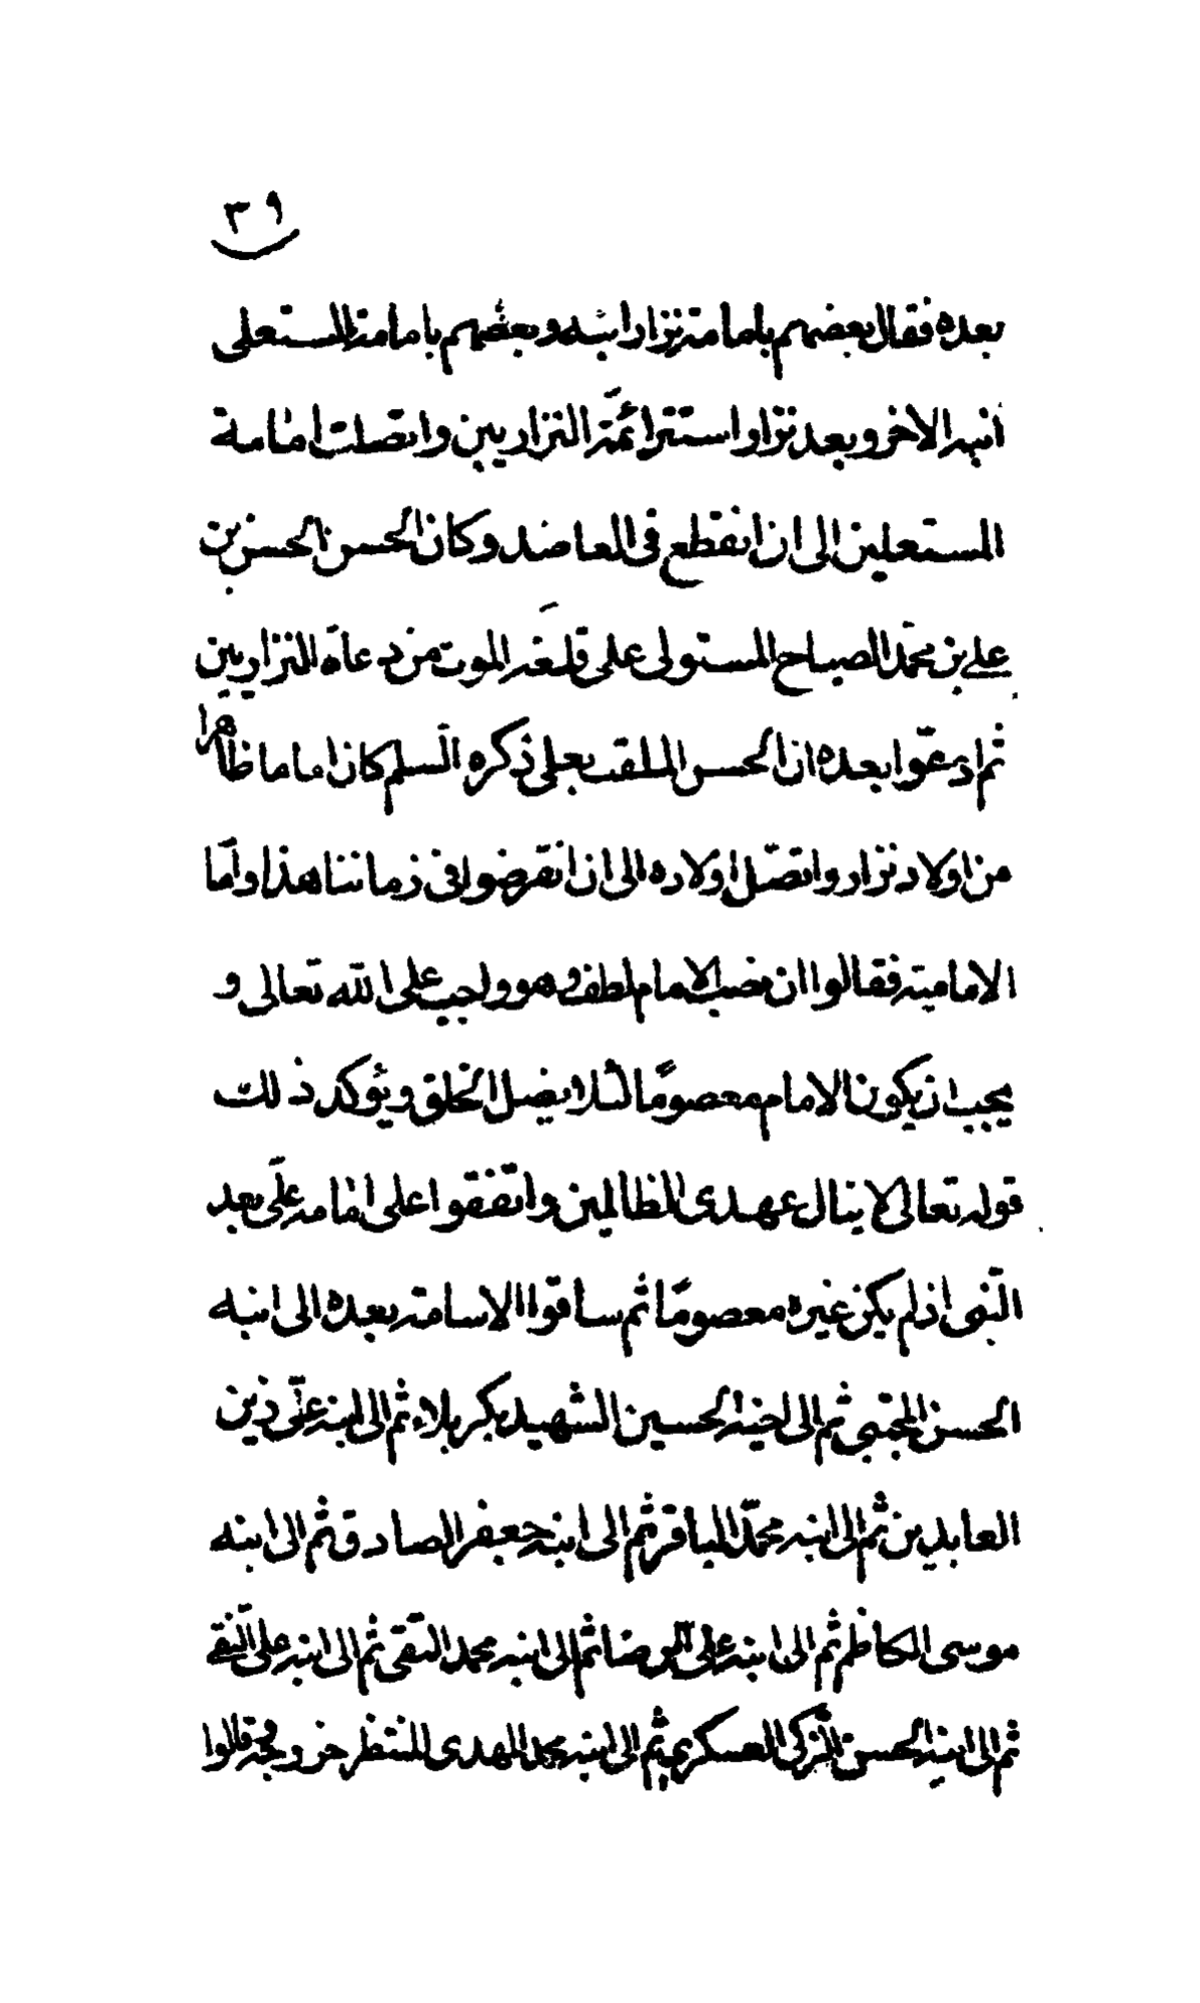 ٣٩
بعده فقال بعضهم بامامة نزار ابنه وبعضهم بامامة المستعلى
ابنه الاخر وبعد نزار استتر ائمّة النزاريين واتصلت امامة
المستعلين الى ان انقطع فى العاضد وكان الحسن الحسن بن
على بن محمّد الصباح المستولى على قلعة الموت من دعاة النزاريين
ثم ادعّوا بعده ان الحسن الملقب بعلى ذكره السّلم كان اماما ظاهرا
من اولاد نزار واتصّل اولاده الى ان انقرضوا فى زماننا هذا وامّا
الامامية فقالوا ان نصب الامام لطف وهو واجب على الله تعالى و
يجب ان يكون الامام معصومًا لئلا يضل الخلق ويؤكد ذلك
قوله تعالى لا ينال عهدى الظالمين واتفقوا على امامة علّى بعد
النّبى اذ لم يكن غيره معصومًا ثم ساقوا الامامة بعده الى ابنه
الحسن المجتبى ثم الى اخيه الحسين الشهيد بكربلاء ثم الى ابنه علّى زين
العابدين ثم الى ابنه محمّد الباقر ثم الى ابنه جعفر الصادق ثم الى ابنه
موسى الكاظم ثم الى ابنه على الرضا ثم الى ابنه محمد التقى ثم الى ابنه على النّقى
ثم الى ابنه الحسن الزكى العسكرى ثم الى ابنه محمد المهدى المنتظر خروجه قالوا